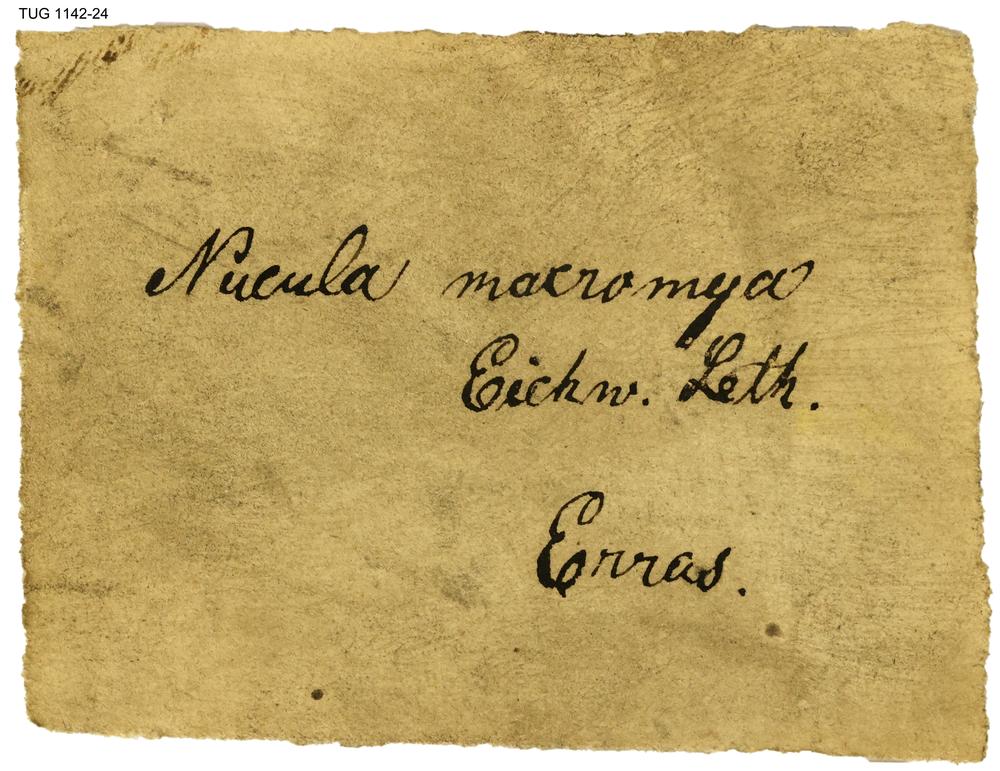 TUG 1142-24
Nucula macromya
Eichw. Leth.
Erras.